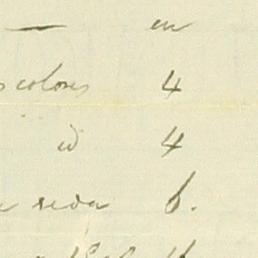 — en
colores 4
id 4
seda 6.